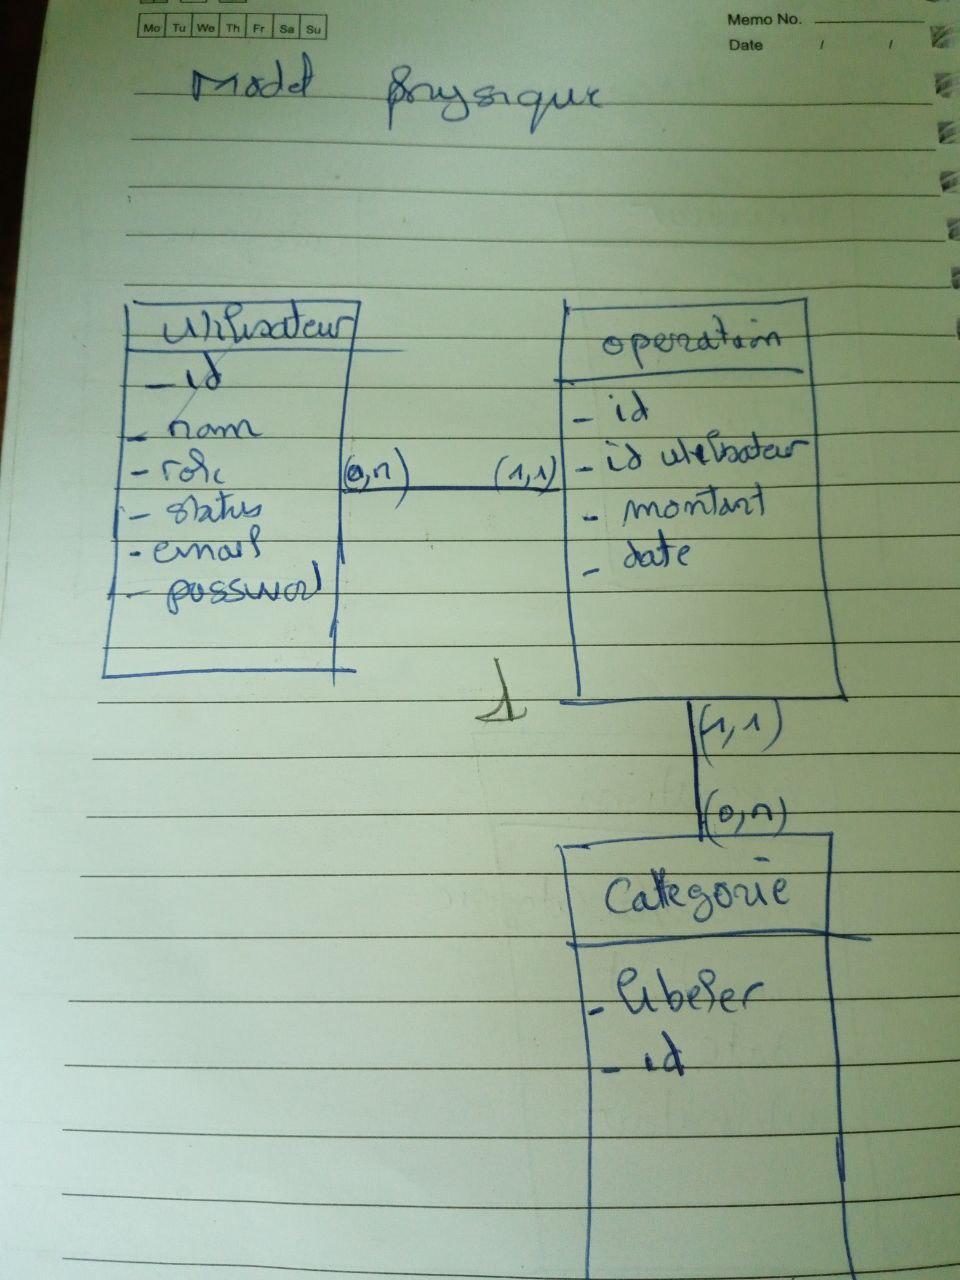 Mo Tu We Th Fr Sa Su
Memo No.
Date / /
Model physique
Utilisateur
- id
- nom
- role
- status
- email
- password
(0,n)
(1,1)
operation
- id
- id utilisateur
- montant
- date
1
(1,1)
(0,n)
Categorie
- libeler
- id